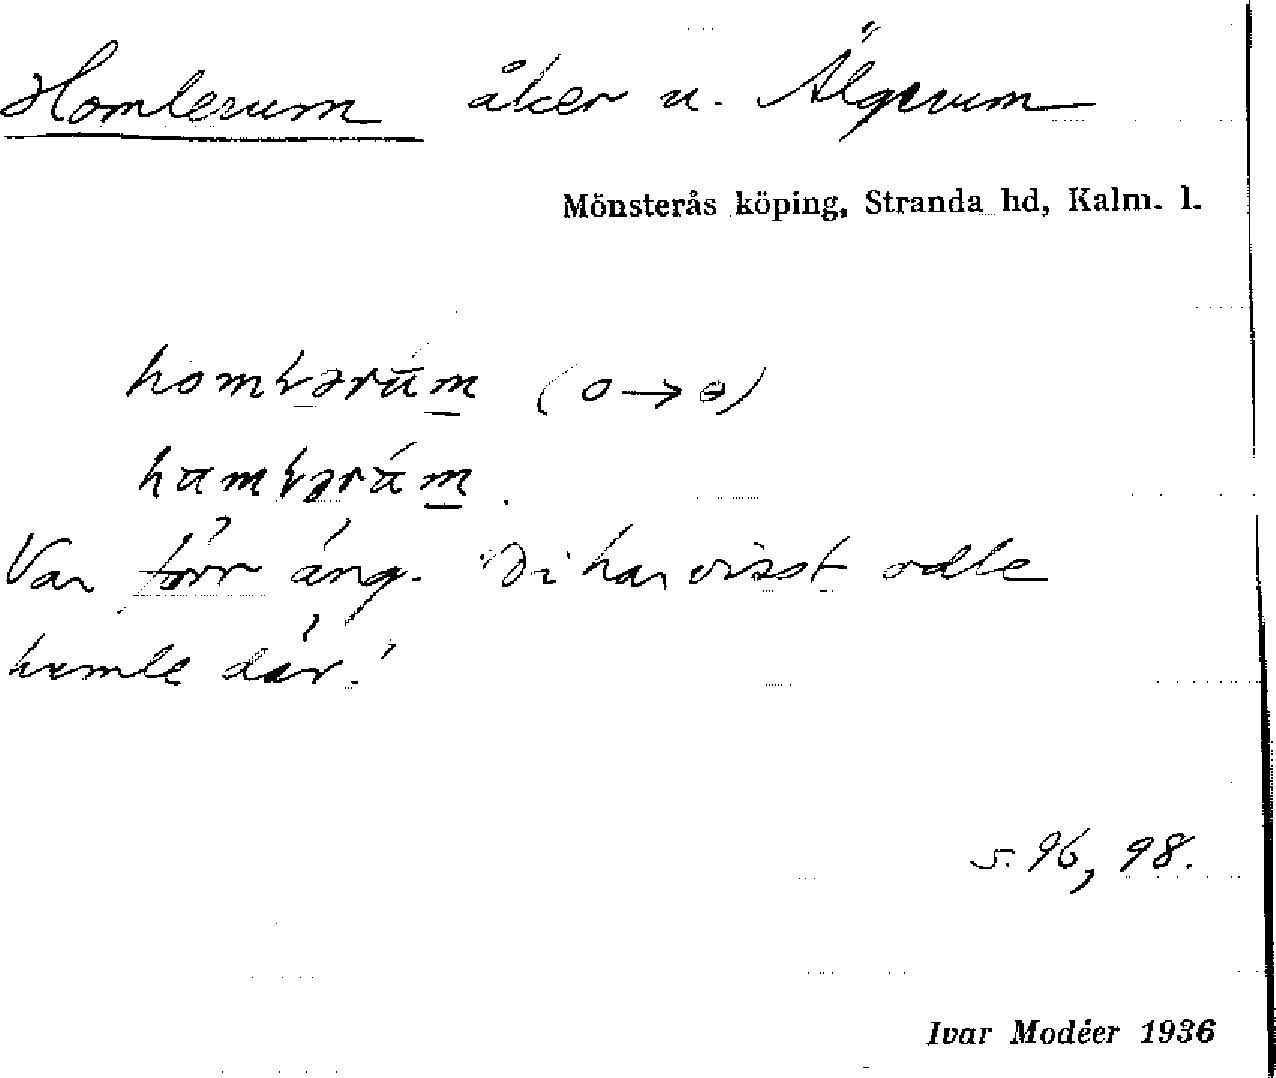 Homlerum åker u. Älgerum
Mönsterås köping, Stranda hd, Kalm. l.
homłərúm (o→ɵ)
humłərúm.
Var förr äng. "Di har visst odle
humle där."
s. 96, 98.
Ivar Modéer 1936